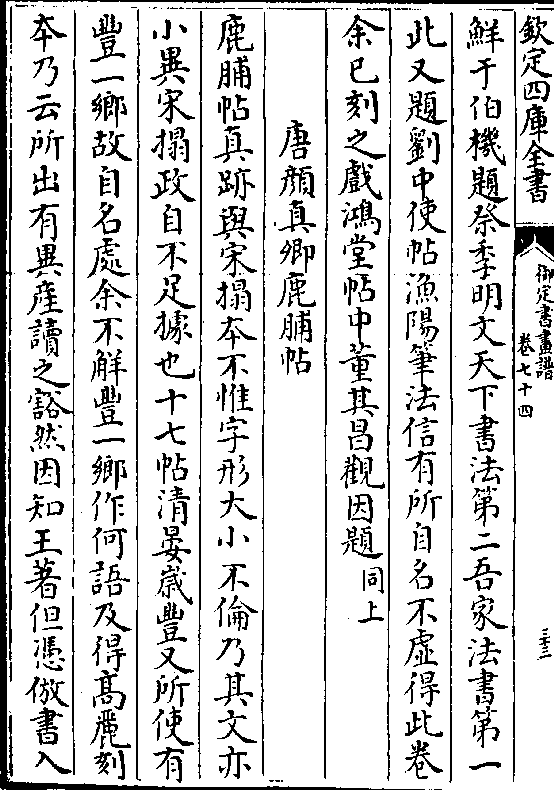 欽定四庫全書
御定書畫譜
卷七十四
三三
鮮于伯機題祭季明文天下書法第二吾家法書第一
此又題劉中使帖漁陽筆法信有所自名不虛得此卷
余已刻之戲鴻堂帖中董其昌觀因題同上
唐顔真卿鹿脯帖
鹿脯帖真跡與宋搨夲不惟字形大小不倫乃其文亦
小異宋搨政自不足據也十七帖清晏嵗豐又所使有
豐一鄉故自名處余不解豐一鄉作何語及得髙麗刻
夲乃云所出有異産讀之豁然因知王著但憑倣書入